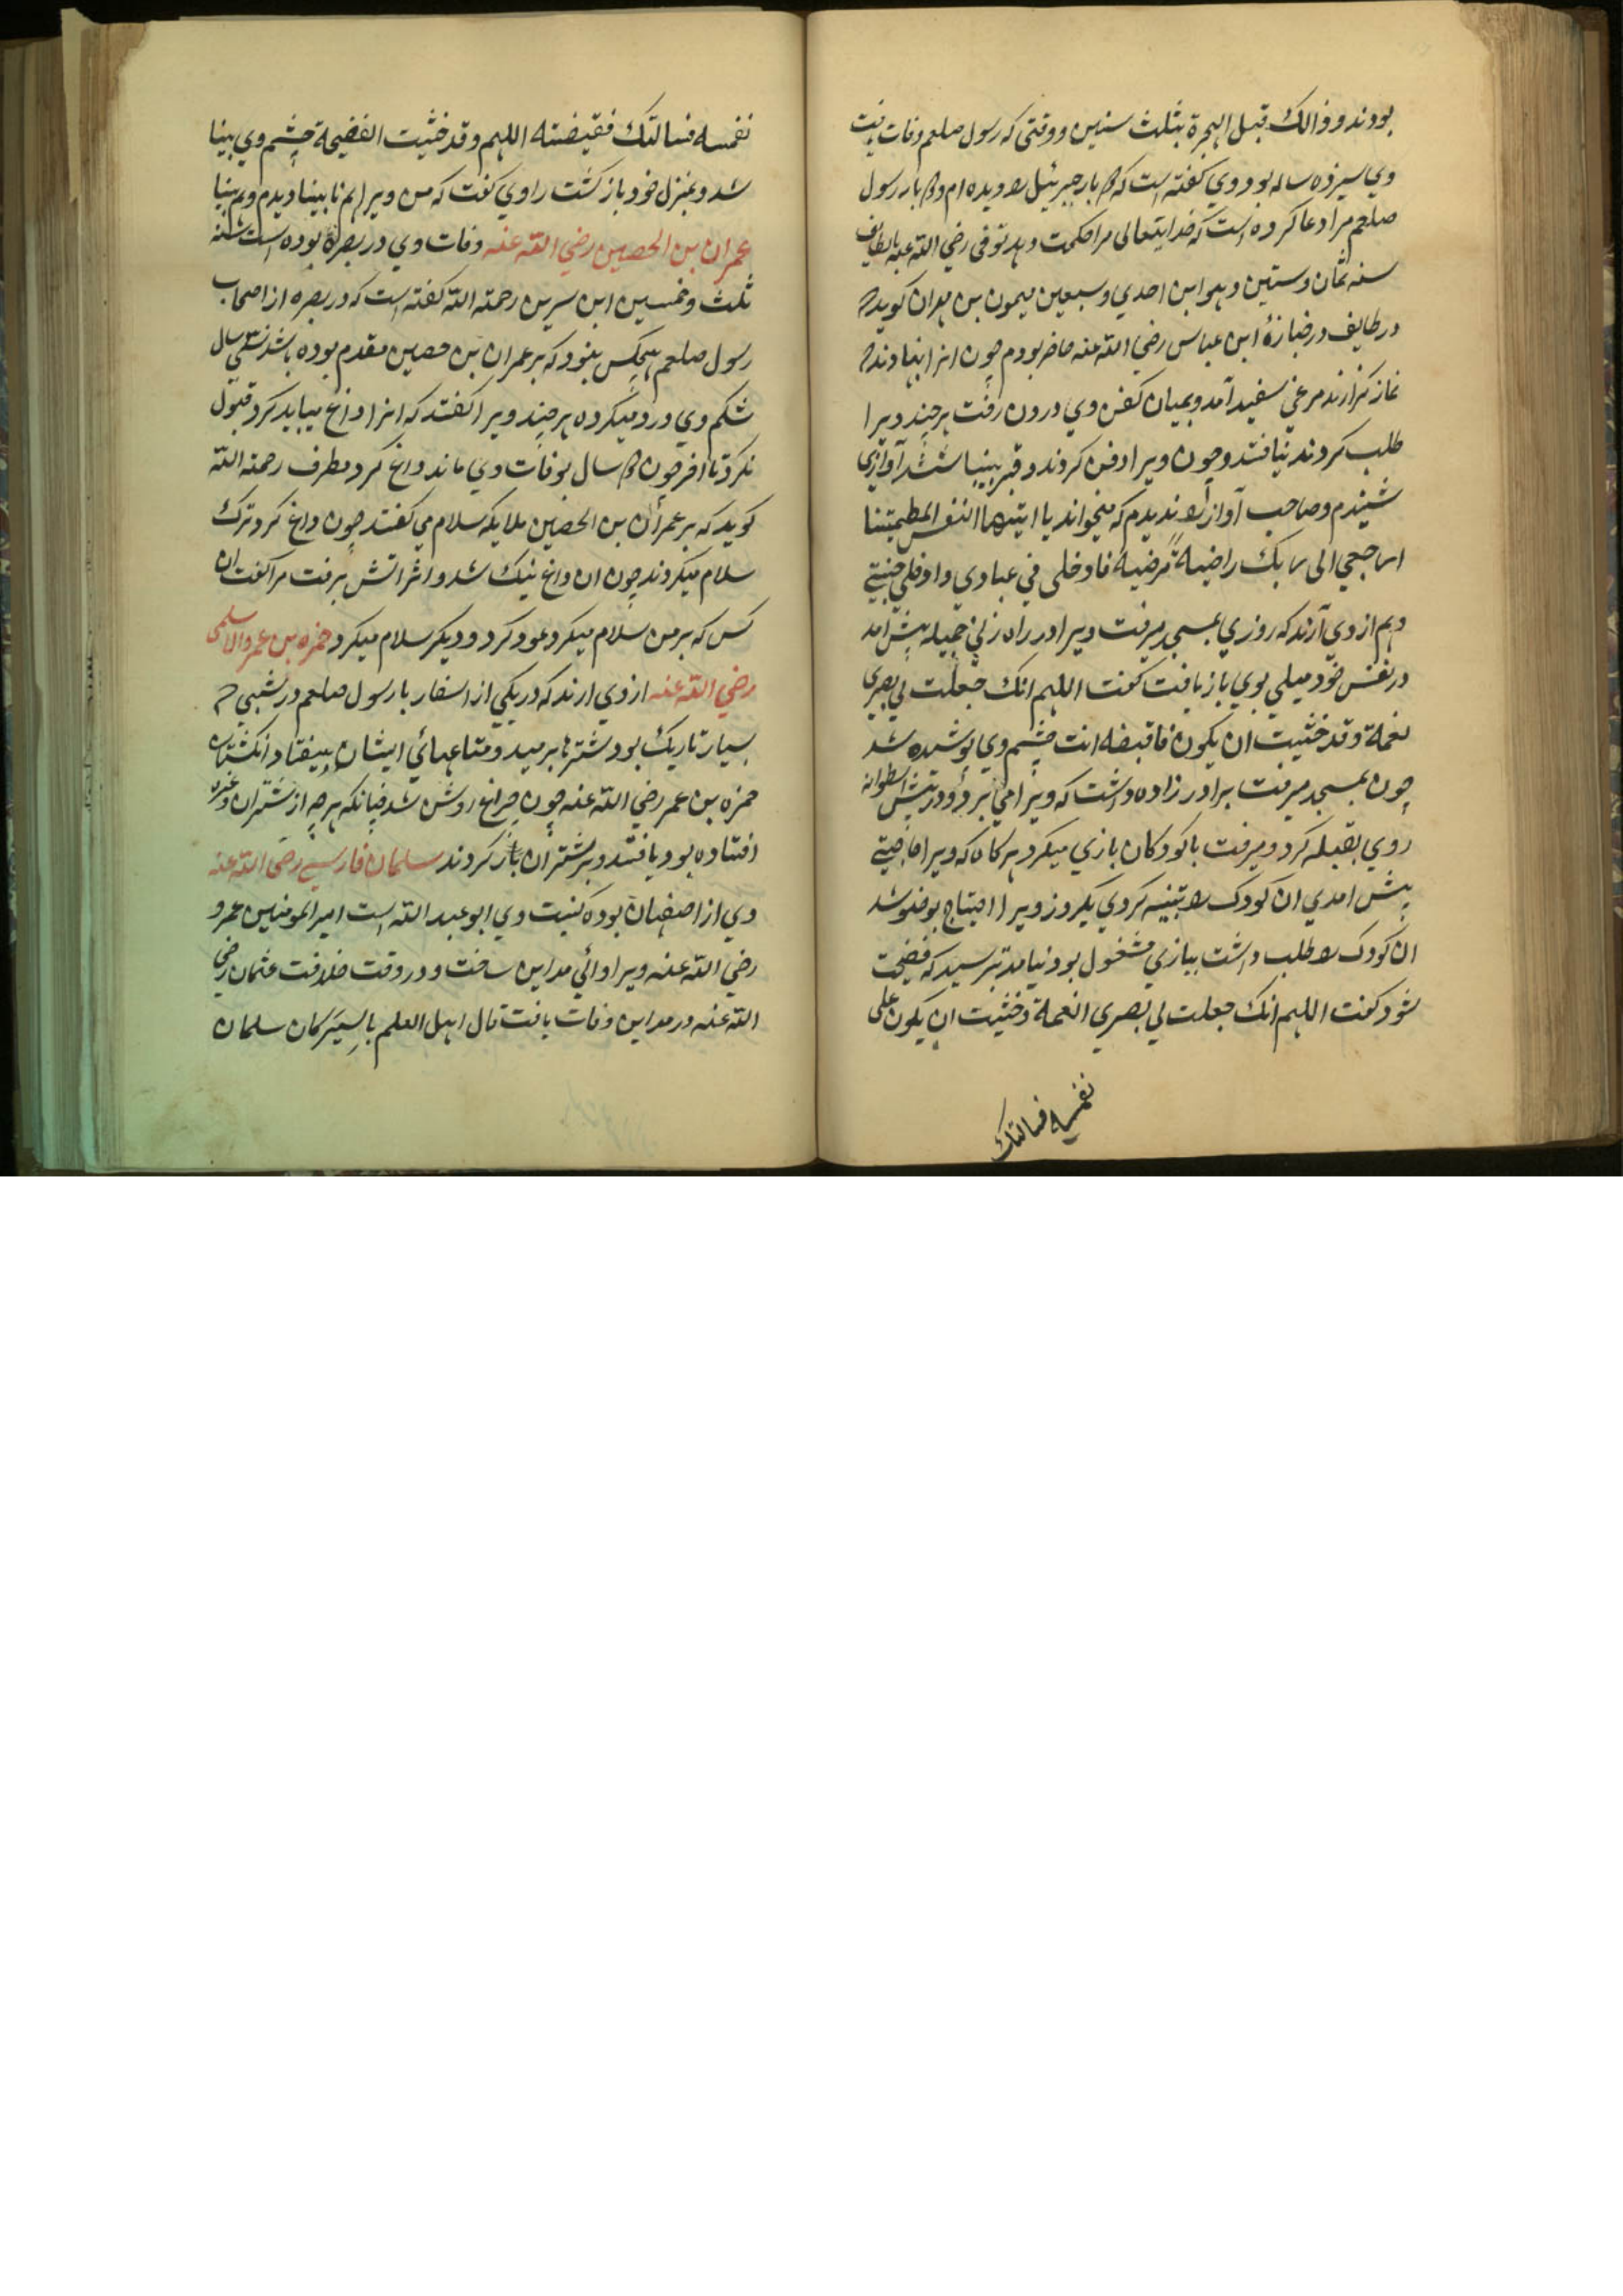 بودند و ذالک قبل الهجرة بثلث سنین و وقتی که رسول صلعم وفات یافت
وي سیزده ساله بود وي کفته است که بار جبرئیل را دیده ام و بار رسول
صلعم مرا دعا کرده است که خدایتعالی مرا حکمت دهد توفی رضي الله عنه بالطایف
سنه ثمان و ستین و هو ابن احدي و سبعین میمون بن مهران کوید
در طایف در جنازۀ ابن عباس رضي الله عنه حاضر بودم چون انرا بنهادند
نماز کزارند مرغي سفید آمد و بمیان کفن وي درون رفت هر چند ویرا
طلب کردند نیافتند و چون ویرا دفن کردند و قبر آوازي
شنیدم و صاحب آواز را ندیدم که میخواند یا ایتها النفس المطمئنة
ارجعي الی ربک راضیة مرضیة فادخلي في عبادي وادخلي جنتي
و هم از وي آرند که روزي بمسجد میرفت ویرا در راه زني جمیله پیش آمد
در نفس خود میلي بوي باز یافت کفت اللهم انک جعلت لي بصري
نعمة و قد خشیت ان یکون فاقبضه انت چشم وي پوشیده شد
چون بمسجد میرفت برادر زاده داشت که ویرا مي برد و در پیش اسطوانه
روي بقبله کرد و میرفت با کودکان بازي میکرد هر کاه که ویرا حاجتي
پیش امدي ان کودک را تنبیه کردي یکروز ویرا احتیاج بوضو شد
ان کودک را طلب داشت ببازي مشغول بود نیامد بترسید که فضیحت
شود کفت اللهم انک جعلت لي بصري نعمة و خشیت ان یکون علی
نفسه فسالتک
نفسه فسالتک فقبضته اللهم و قد خشیت الفضیحة چشم وي بینا
شد و بمنزل خود باز کشت راوي کفت که من ویرا هم نابینا دیدم و هم بینا
عمران بن الحصین رضي الله عنه وفات وي در بصرة بوده است سنه
ثلث و خمسین ابن سیرین رحمة الله کفته است که در بصره از اصحاب
رسول صلعم هیچکس نبود که بر عمران بن حصین مقدم بوده باشد سي سال
شکم وي درد میکرده هر چند ویرا کفتند که انرا داغ میباید کرد قبول
نکرد تا اخر چون سال بوفات وي ماند داغ کرد مطرف رحمة الله
کوید که بر عمران بن الحصین ملایکه سلام مي کفتند چون داغ کرد ترک
سلام میکردند چون ان داغ نیک شد و اثر اتش برفت مرا کفت ان
کس که بر من سلام میکرد عود کرد و دیکر سلام میکرد حمزه بن عمرو الاسلمي
رضي الله عنه از وي ارند که در یکي از اسفار با رسول صلعم در شبي
بسیار تاریک بود شترها برمید و متاعهائي ایشان بیفتاد انکشتان
حمزه بن عمر رضي الله عنه چون چراغ روشن شد چنانکه هر چه از شتران و غیره
افتاده بود یافتند و بر شتران بار کردند سلمان فارسي رضي الله عنه
وي از اصفهان بوده کنیت وي ابو عبد الله است امیر المومنین عمر و
رضي الله عنه ویرا والئي مداین ساخت و در وقت خلافت عثمان رضي
الله عنه در مداین وفات یافت قال اهل العلم بالسیر کان سلمان